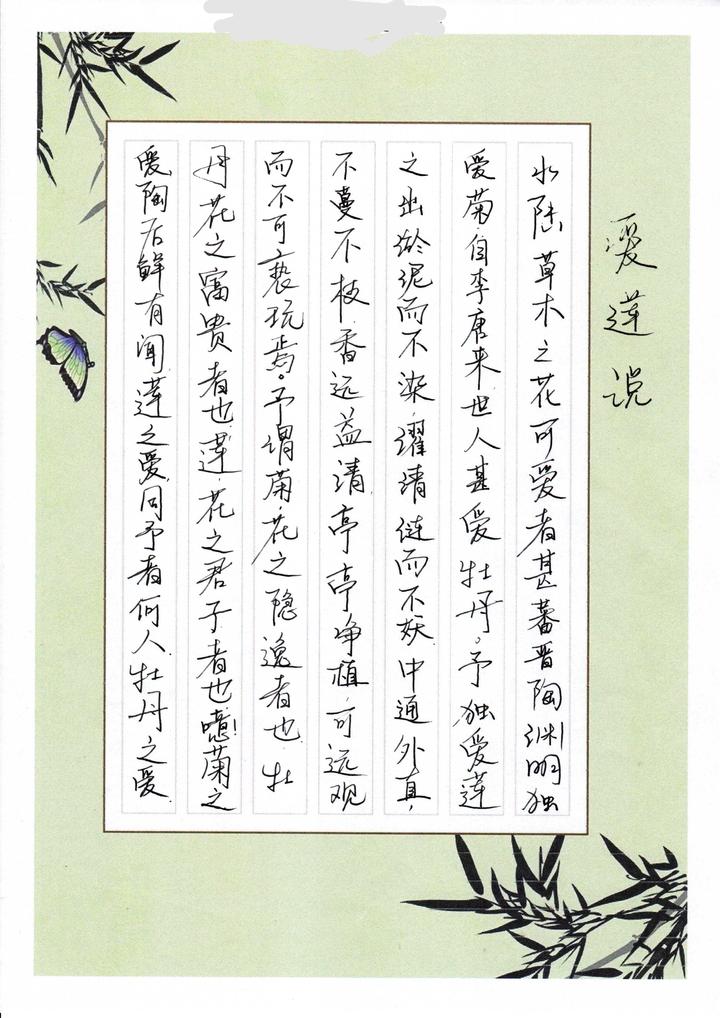 爱莲说
水陆草木之花可爱者甚蕃晋陶渊明独
爱菊自李唐来世人甚爱牡丹。予独爱莲
之出淤泥而不染，濯清涟而不妖中通外直，
不蔓不枝香远益清，亭亭净植，可远观
而不可亵玩焉。予谓菊，花之隐逸者也，牡
丹花之富贵者也莲，花之君子者也噫！菊之
爱陶后鲜有闻莲之爱，同予者何人，牡丹之爱，